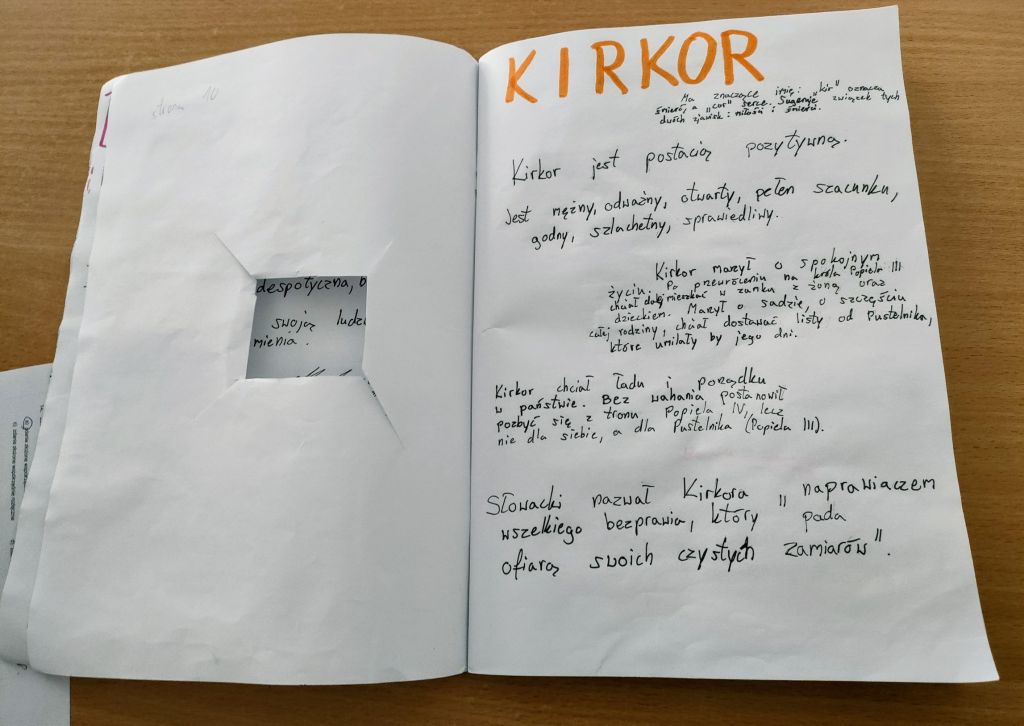 strona 10
despotyczna, o
swoją ludz
mienia.
KIRKOR
Ma znaczące imię: "kir" oznacza
śmierć, a "cor" serce. Sugeruje związek tych
dwóch zjawisk: miłości i śmierci.
Kirkor jest postacią pozytywną.
Jest mężny, odważny, otwarty, pełen szacunku,
godny, szlachetny, sprawiedliwy.
Kirkor marzył o spokojnym
życiu. Po przewróceniu na króla Popiela III
chciał dalej mieszkać w zamku z żoną oraz
dzieckiem. Marzył o sadzie, o szczęściu
całej rodziny, chciał dostawać listy od Pustelnika,
które umilały by jego dni.
Kirkor chciał ładu i porządku
w państwie. Bez wahania postanowił
pozbyć się z tronu, Popiela IV, lecz
nie dla siebie, a dla Pustelnika (Popiela III).
Słowacki nazwał Kirkora "naprawiaczem
wszelkiego bezprawia, który pada
ofiarą swoich czystych zamiarów".